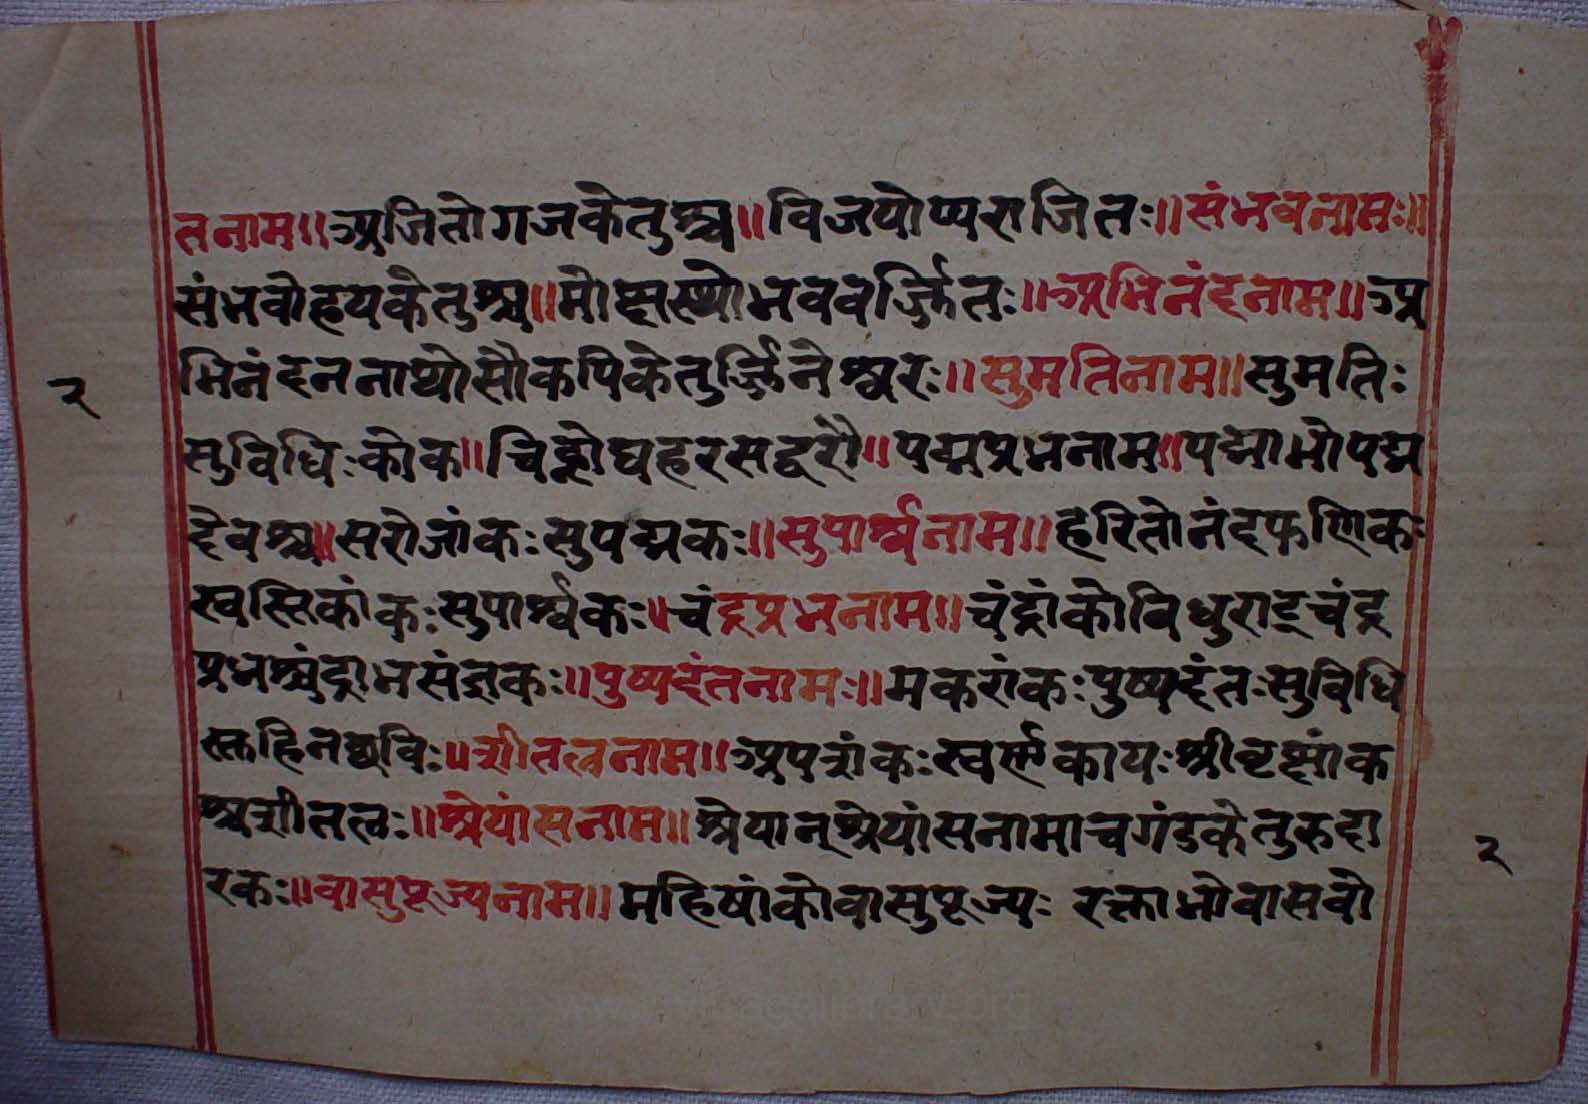 तनाम॥अजितोगजकेतुश्च॥विजयोप्यराजितः॥संभवनामः॥
संभवोहयकेतुश्च॥मोक्षस्थोभववर्ज्जितः॥अभिनंदनाम॥अ
२ भिनंदननाथोसौकपिकेतुर्ज्जिनेश्वरः॥सुमतिनाम॥सुमतिः
सुविधिःकोक॥चिह्नोघहरसद्वरौ॥पद्मप्रभनाम॥पद्माभोपद्म
देवश्च॥सरोजांकःसुपद्मकः॥सुपार्श्वनाम॥हरितोनंदफणिकः
स्वस्तिकांकःसुपार्श्वकः॥चंद्रप्रभनाम॥चंद्रांकोविधुराट्चंद्र
प्रभश्चंद्राभसंज्ञकः॥पुष्पदंतनामः॥मकरांकःपुष्पदंतःसुविधि
स्तहिनछविः॥शीतलनाम॥अपरांकःस्वर्णकायःश्रीवृक्षांक
श्चशीतलः॥श्रेयांसनाम॥श्रेयान्श्रेयांसनामाचगंडकेतुरुदा २
रकः॥वासुपूज्यनाम॥महिषांकोवासुपूज्यः रक्ताभोवासवो
www.vitragelibrary.org